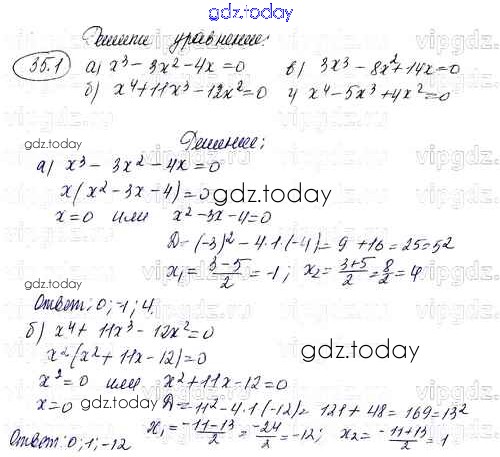 gdz.today
Решите уравнение:
35.1 а) x³ - 3x² - 4x = 0 в) 3x³ - 8x² + 14x = 0
б) x⁴ + 11x³ - 12x² = 0 г) x⁴ - 5x³ + 4x² = 0
gdz.today
Решение:
а) x³ - 3x² - 4x = 0
x(x² - 3x - 4) = 0
gdz.today
x = 0 или x² - 3x - 4 = 0
D = (-3)² - 4·1·(-4) = 9 + 16 = 25 = 5²
x₁ = (3-5)/2 = -1; x₂ = (3+5)/2 = 8/2 = 4
gdz.today
Ответ: 0; -1; 4.
б) x⁴ + 11x³ - 12x² = 0
x²(x² + 11x - 12) = 0
gdz.today
x² = 0 или x² + 11x - 12 = 0
x = 0 D = 11² - 4·1·(-12) = 121 + 48 = 169 = 13²
x₁ = (-11-13)/2 = -24/2 = -12; x₂ = (-11+13)/2 = 1
Ответ: 0; 1; -12
gdz.today